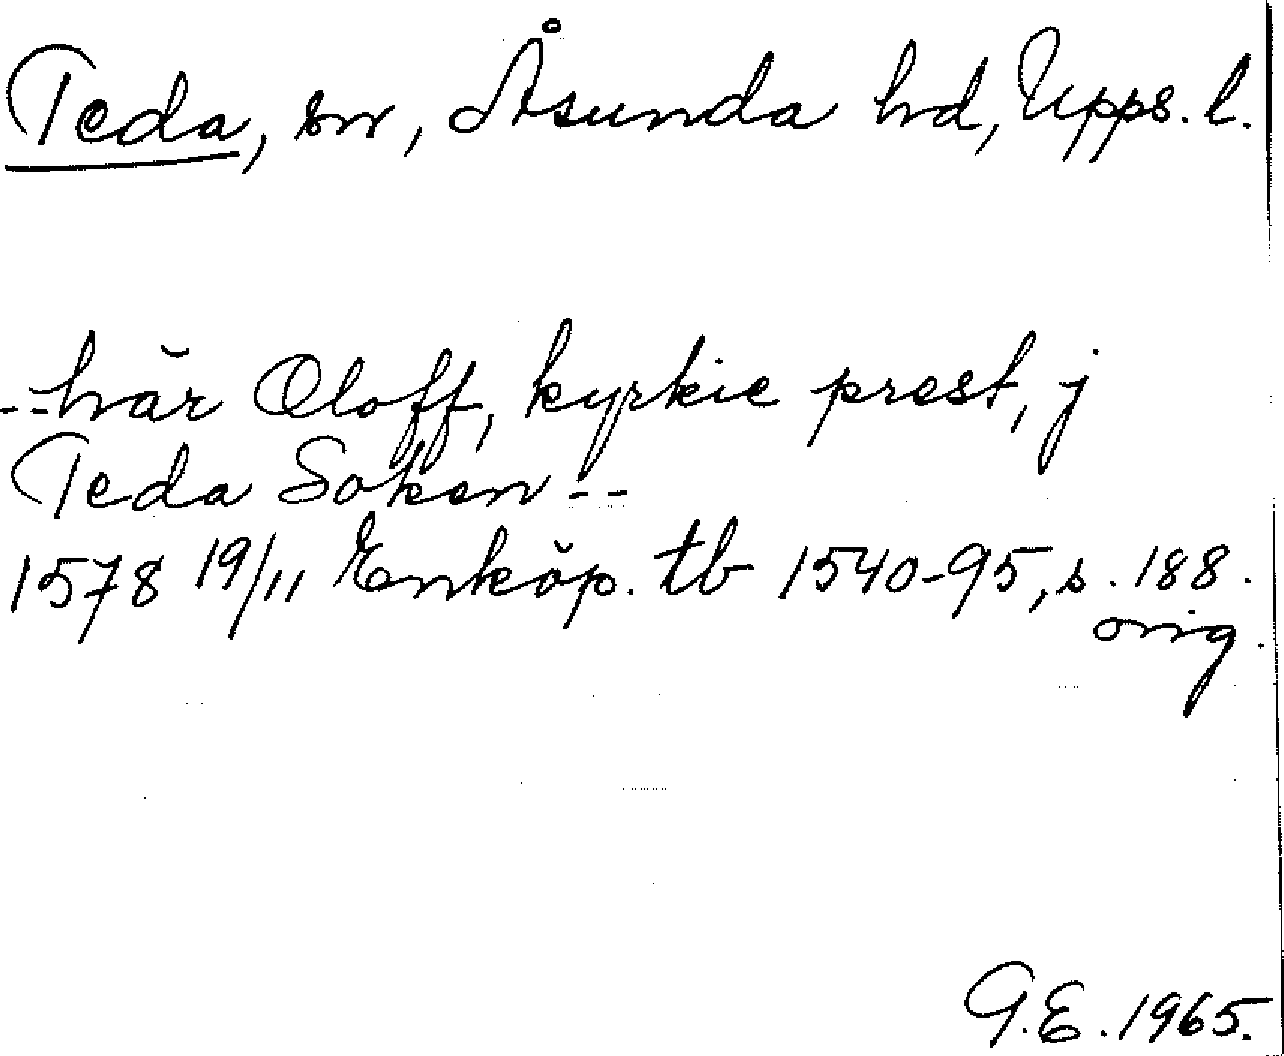 Teda, sn, Åsunda hd, Upps. l.
--här Oloff, kyrkie prest, j
Teda Soken --
1578 19/11 Enköp. tb 1540-95, s. 188.
orig.
G.E. 1965.